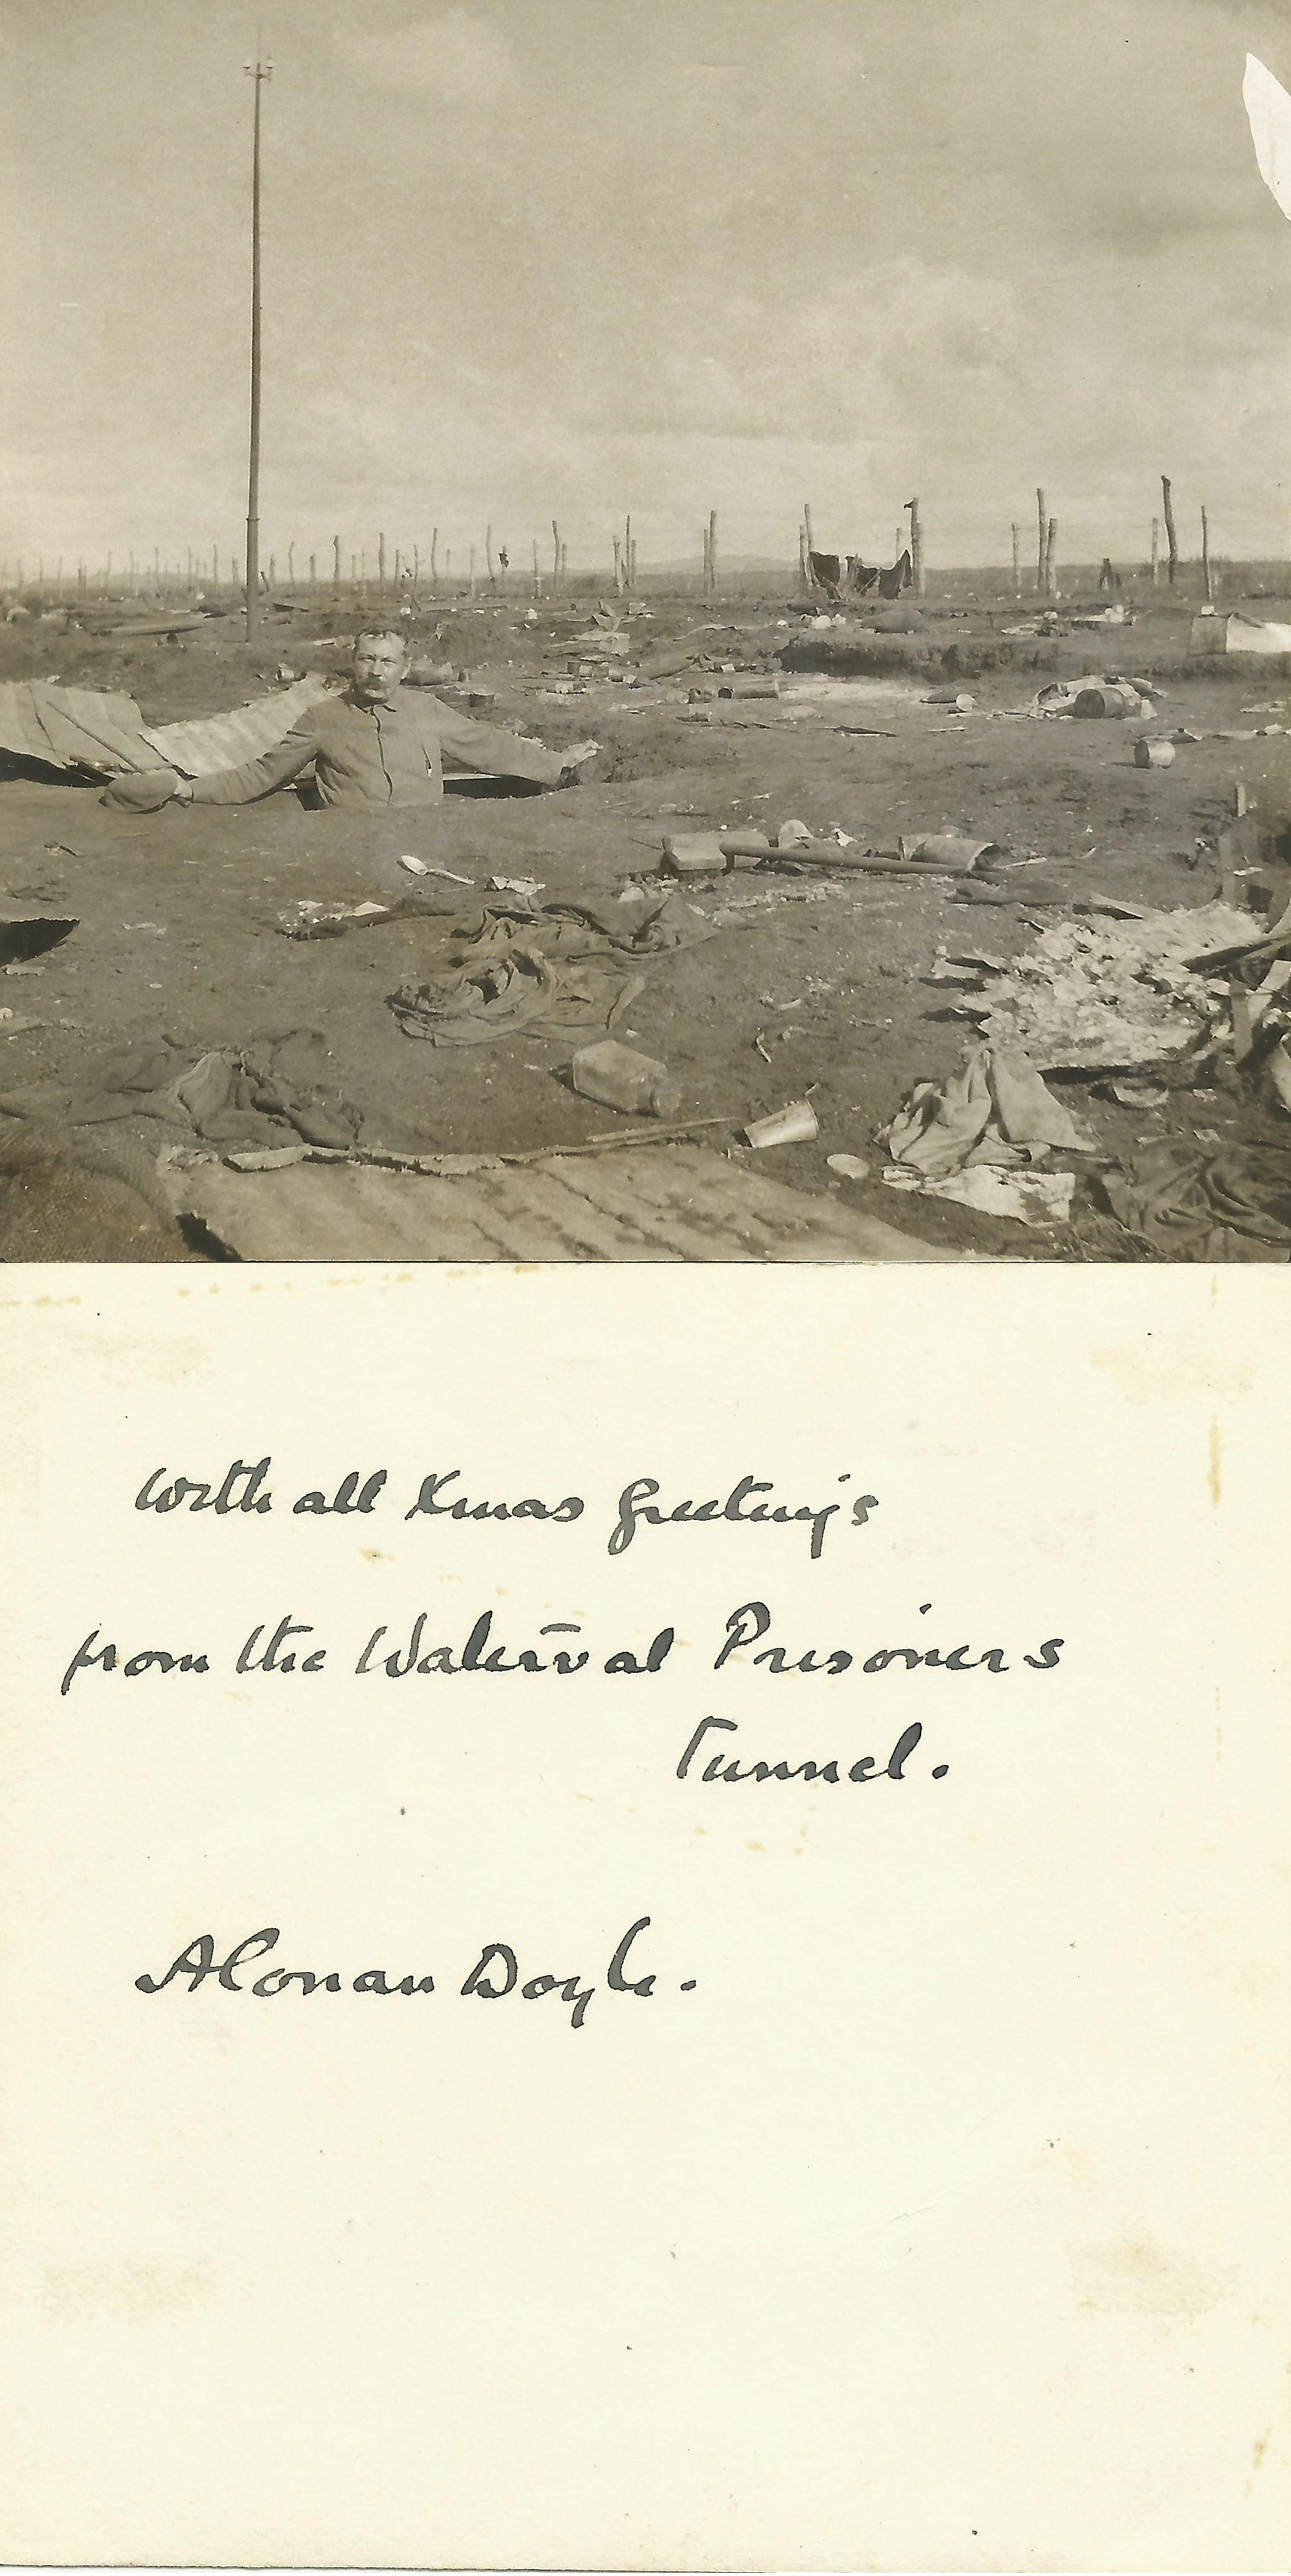 With all Xmas greetings
from the Waterval Prisoners
Tunnel.
A Conan Doyle.